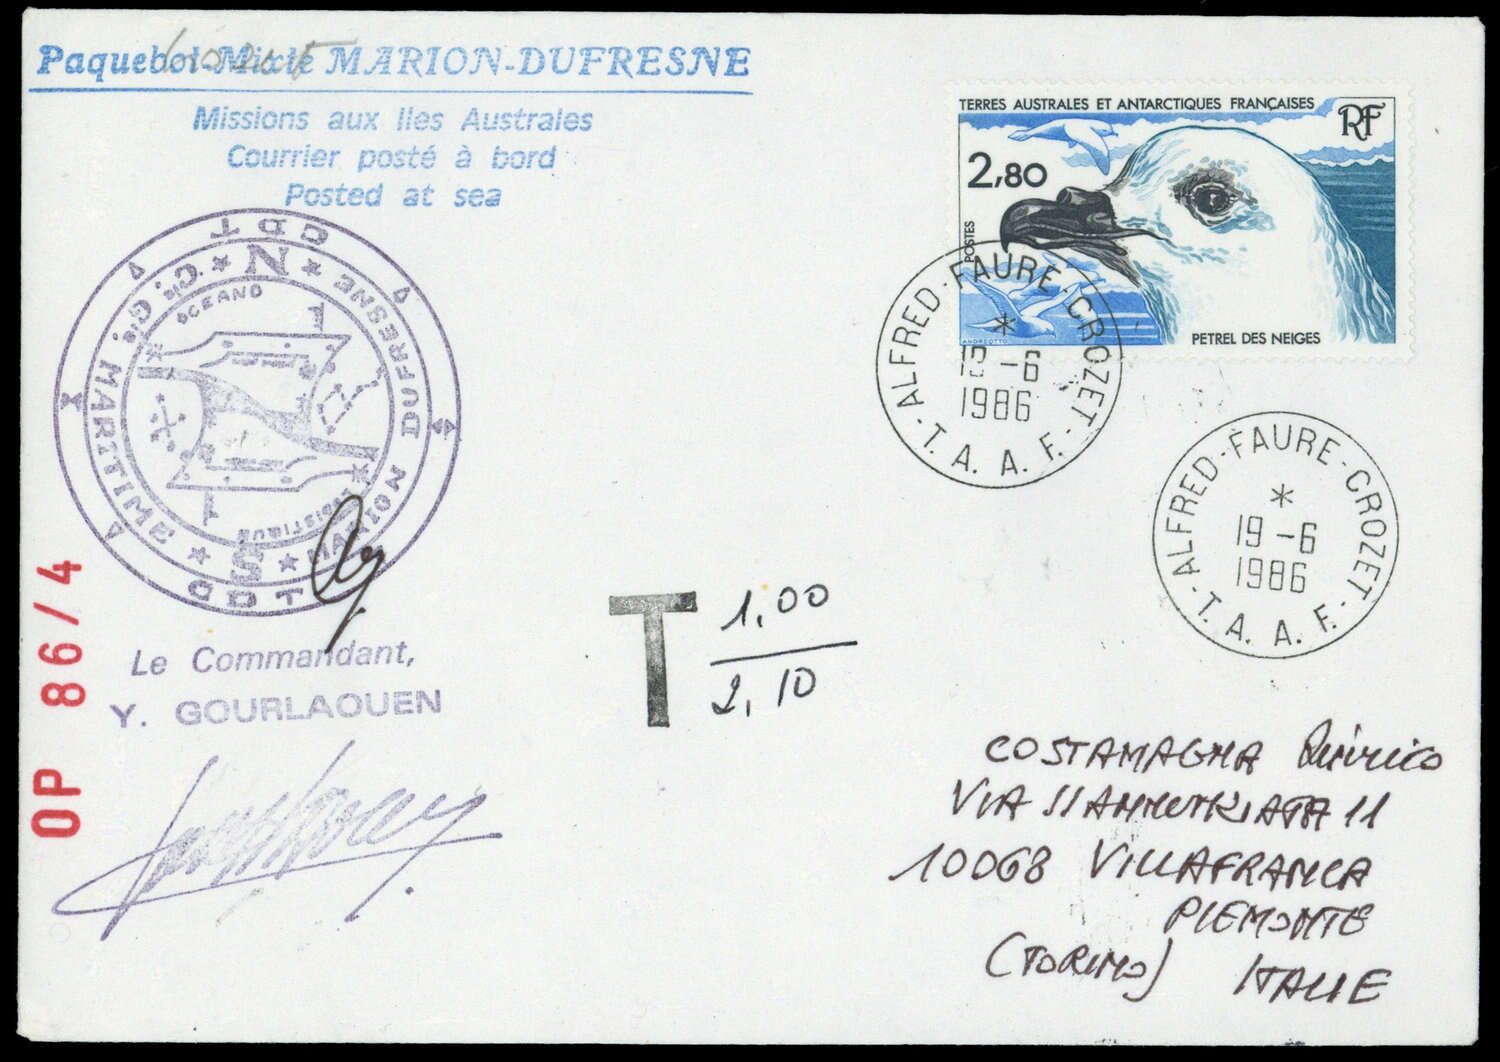 Paquebot-Mixte MARION-DUFRESNE
Missions aux Iles Australes
Courrier posté à bord
Posted at sea
TERRES AUSTRALES ET ANTARCTIQUES FRANÇAISES
RF
2,80
POSTES
ANDREOTTO
PETREL DES NEIGES
ALFRED-FAURE-CROZET
*
19-6
1986
-T.A.A.F.-
ALFRED-FAURE-CROZET
*
19-6
1986
-T.A.A.F.-
CDT
N
Cie Gle MARITIME
MARION DUFRESNE
OCEANO
S
OP 86/4
Le Commandant,
Y. GOURLAOUEN
T 1,00
2,10
COSTAMAGNA Quirico
VIA 11
10068 VILLAFRANCA
PIEMONTE
(TORINO) ITALIE